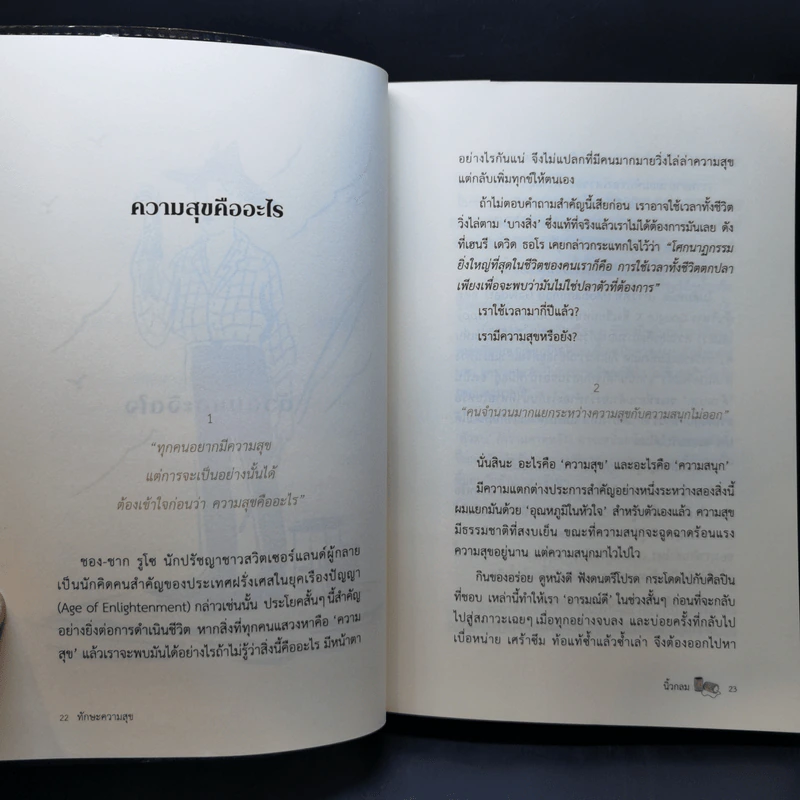 ความสุขคืออะไร
1
“ทุกคนอยากมีความสุข
แต่การจะเป็นอย่างนั้นได้
ต้องเข้าใจก่อนว่า ความสุขคืออะไร”
ชอง-ชาก รูโซ นักปรัชญาชาวสวิตเซอร์แลนด์ผู้กลาย
เป็นนักคิดคนสำคัญของประเทศฝรั่งเศสในยุคเรืองปัญญา
(Age of Enlightenment) กล่าวเช่นนั้น ประโยคสั้นๆ นี้สำคัญ
อย่างยิ่งต่อการดำเนินชีวิต หากสิ่งที่ทุกคนแสวงหาคือ ‘ความ
สุข’ แล้วเราจะพบมันได้อย่างไรถ้าไม่รู้ว่าสิ่งนี้คืออะไร มีหน้าตา
22 ทักษะความสุข
อย่างไรกันแน่ จึงไม่แปลกที่มีคนมากมายวิ่งไล่ล่าความสุข
แต่กลับเพิ่มทุกข์ให้ตนเอง
ถ้าไม่ตอบคำถามสำคัญนี้เสียก่อน เราอาจใช้เวลาทั้งชีวิต
วิ่งไล่ตาม ‘บางสิ่ง’ ซึ่งแท้ที่จริงแล้วเราไม่ได้ต้องการมันเลย ดัง
ที่เฮนรี เดวิด ธอโร เคยกล่าวกระแทกใจไว้ว่า “โศกนาฏกรรม
ยิ่งใหญ่ที่สุดในชีวิตของคนเราก็คือ การใช้เวลาทั้งชีวิตตกปลา
เพียงเพื่อจะพบว่ามันไม่ใช่ปลาตัวที่ต้องการ”
เราใช้เวลามากี่ปีแล้ว?
เรามีความสุขหรือยัง?
2
“คนจำนวนมากแยกระหว่างความสุขกับความสนุกไม่ออก”
นั่นสินะ อะไรคือ ‘ความสุข’ และอะไรคือ ‘ความสนุก’
มีความแตกต่างประการสำคัญอย่างหนึ่งระหว่างสองสิ่งนี้
ผมแยกมันด้วย ‘อุณหภูมิในหัวใจ’ สำหรับตัวเองแล้ว ความสุข
มีธรรมชาติที่สงบเย็น ขณะที่ความสนุกจะฉูดฉาดร้อนแรง
ความสุขอยู่นาน แต่ความสนุกมาไวไปไว
กินของอร่อย ดูหนังดี ฟังดนตรีโปรด กระโดดไปกับศิลปิน
ที่ชอบ เหล่านี้ทำให้เรา ‘อารมณ์ดี’ ในช่วงสั้นๆ ก่อนที่จะกลับ
ไปสู่สภาวะเฉยๆ เมื่อทุกอย่างจบลง และบ่อยครั้งที่กลับไป
เบื่อหน่าย เศร้าซึม ท้อแท้ซ้ำแล้วซ้ำเล่า จึงต้องออกไปหา
นิ้วกลม 23